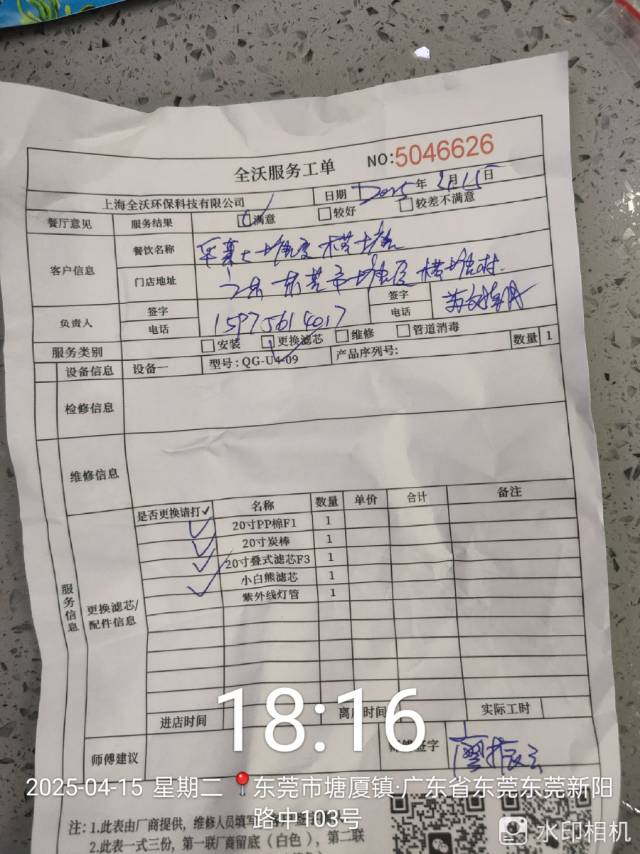 全沃服务工单 NO:5046626
上海全沃环保科技有限公司 日期 2025年 月15日
餐厅意见 服务结果 满意 较好 较差不满意
客户信息 餐饮名称
门店地址 广东 东莞市塘厦
负责人 签字 签字
电话 15975614017 电话
服务类别 安装 更换滤芯 维修 管道消毒
设备信息 设备一 型号:QG-U4-09 产品序列号: 数量 1
检修信息
维修信息
服务信息
更换滤芯/配件信息
是否更换请打✓ 名称 数量 单价 合计 备注
✓ 20寸PP棉F1 1
✓ 20寸炭棒 1
✓ 20寸叠式滤芯F3 1
✓ 小白熊滤芯 1
✓ 紫外线灯管 1
进店时间 离店时间 实际工时
师傅建议 签字
18:16
2025-04-15 星期二 东莞市塘厦镇·广东省东莞东莞新阳
路中103号
注:1.此表由厂商提供，维修人员填写
2.此表一式三份，第一联厂商留底（白色）、第二联
水印相机